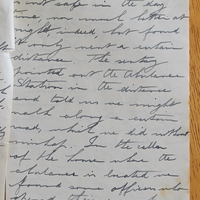 not safe in the day
time, one much better at
night indeed, but found
it only went a certain
distance. The sentry
pointed out the Ambulance
Station in the distance
and told us we might
walk along a certain
road, which we did without
mishap. In the cellar
of the house where the
ambulance is located we
found some officers who